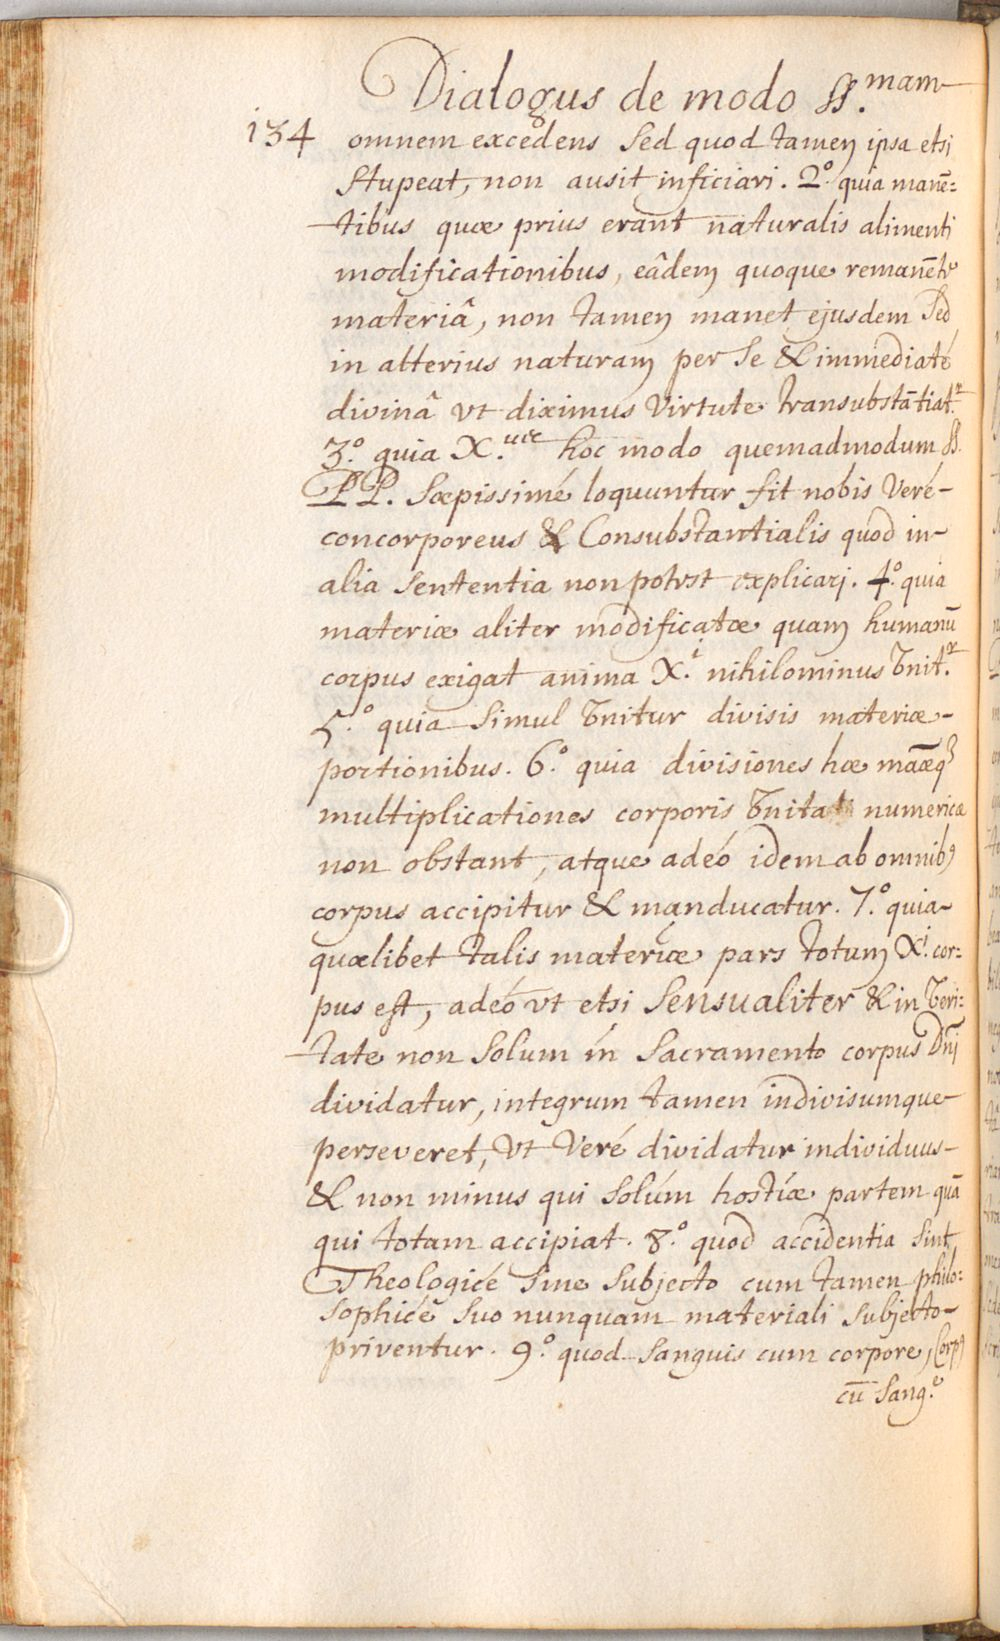 Dialogus de modo SS.mam
134 omnem excedens sed quod tamen ipsa etsi
stupeat, non ausit inficiari. 2.º quia manē=
tibus quæ prius erant naturalis alimenti
modificationibus, eâdem quoque remanēte
materiâ, non tamen manet ejusdem sed
in alterius naturam per se & immediaté
divinâ ut diximus virtute transubstātiat.r
3.º quia X. hoc modo quemadmodum SS.
PP. sæpissimé loquuntur fit nobis veré-
concorporeus & Consubstantialis quod in-
alia sententia non potest explicari. 4.º quia
materiæ aliter modificatæ quam humanū
corpus exigat anima X.i nihilominus unit.r
5.º quia simul unitur divisis materiæ-
portionibus. 6.º quia divisiones hæ māæq3
multiplicationes corporis unitati numericæ
non obstant, atque adeó idem ab omnib9
corpus accipitur & manducatur. 7.º quia-
quælibet talis materiæ pars totum X.i cor=
pus est, adeó ut etsi sensualiter & in veri=
tate non solum in sacramento corpus Dn̄i
dividatur, integrum tamen indivisumque
perseveret, ut veré dividatur individuus-
& non minus qui solúm hostiæ partem quā
qui totam accipiat. 8.º quod accidentia sint
Theologicé sine subjecto cum tamen philo=
sophicé suo nunquam materiali subjecto-
priventur. 9.º quod sanguis cum corpore, Corp9
cū sang.e